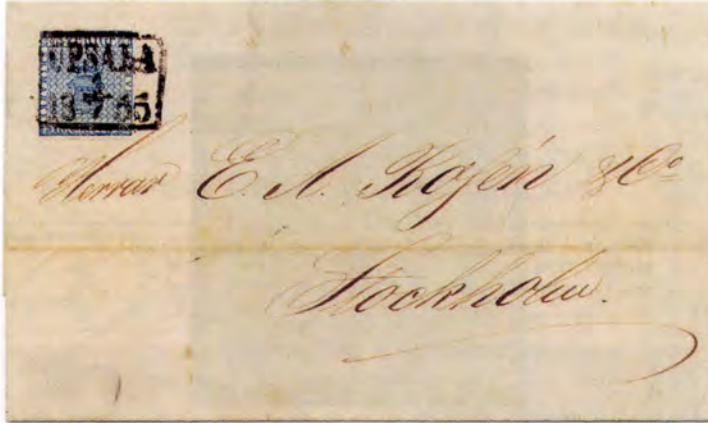 UPSALA
18 7 55
Herrar E. A. Rosén & Co
Stockholm.